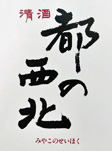 清酒
都の
西北
みやこのせいほく